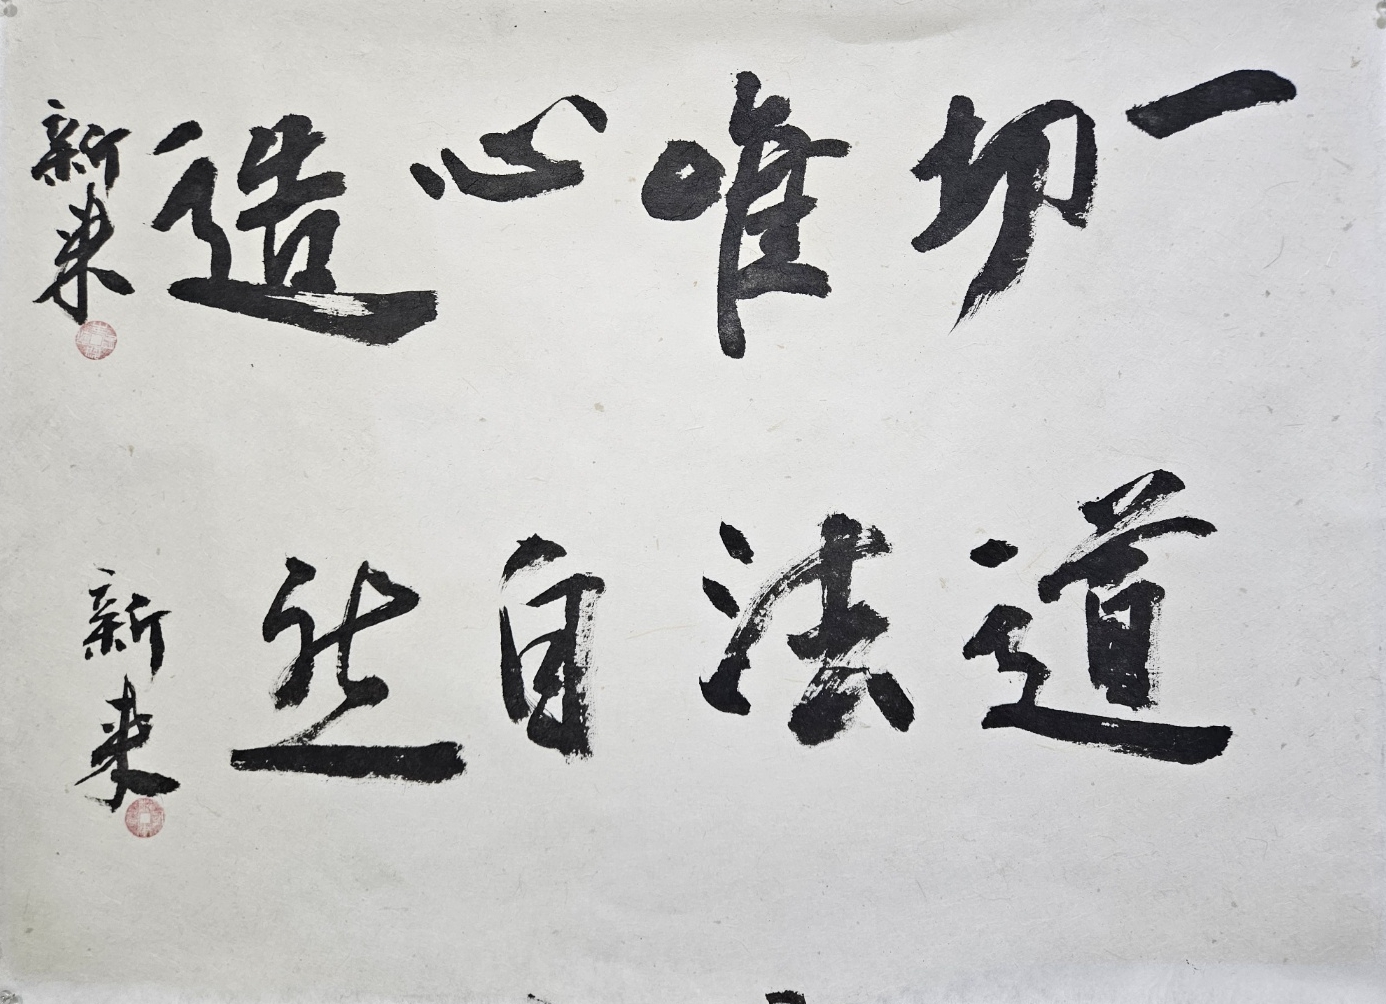 一切唯心造
新来
道法自然
新来